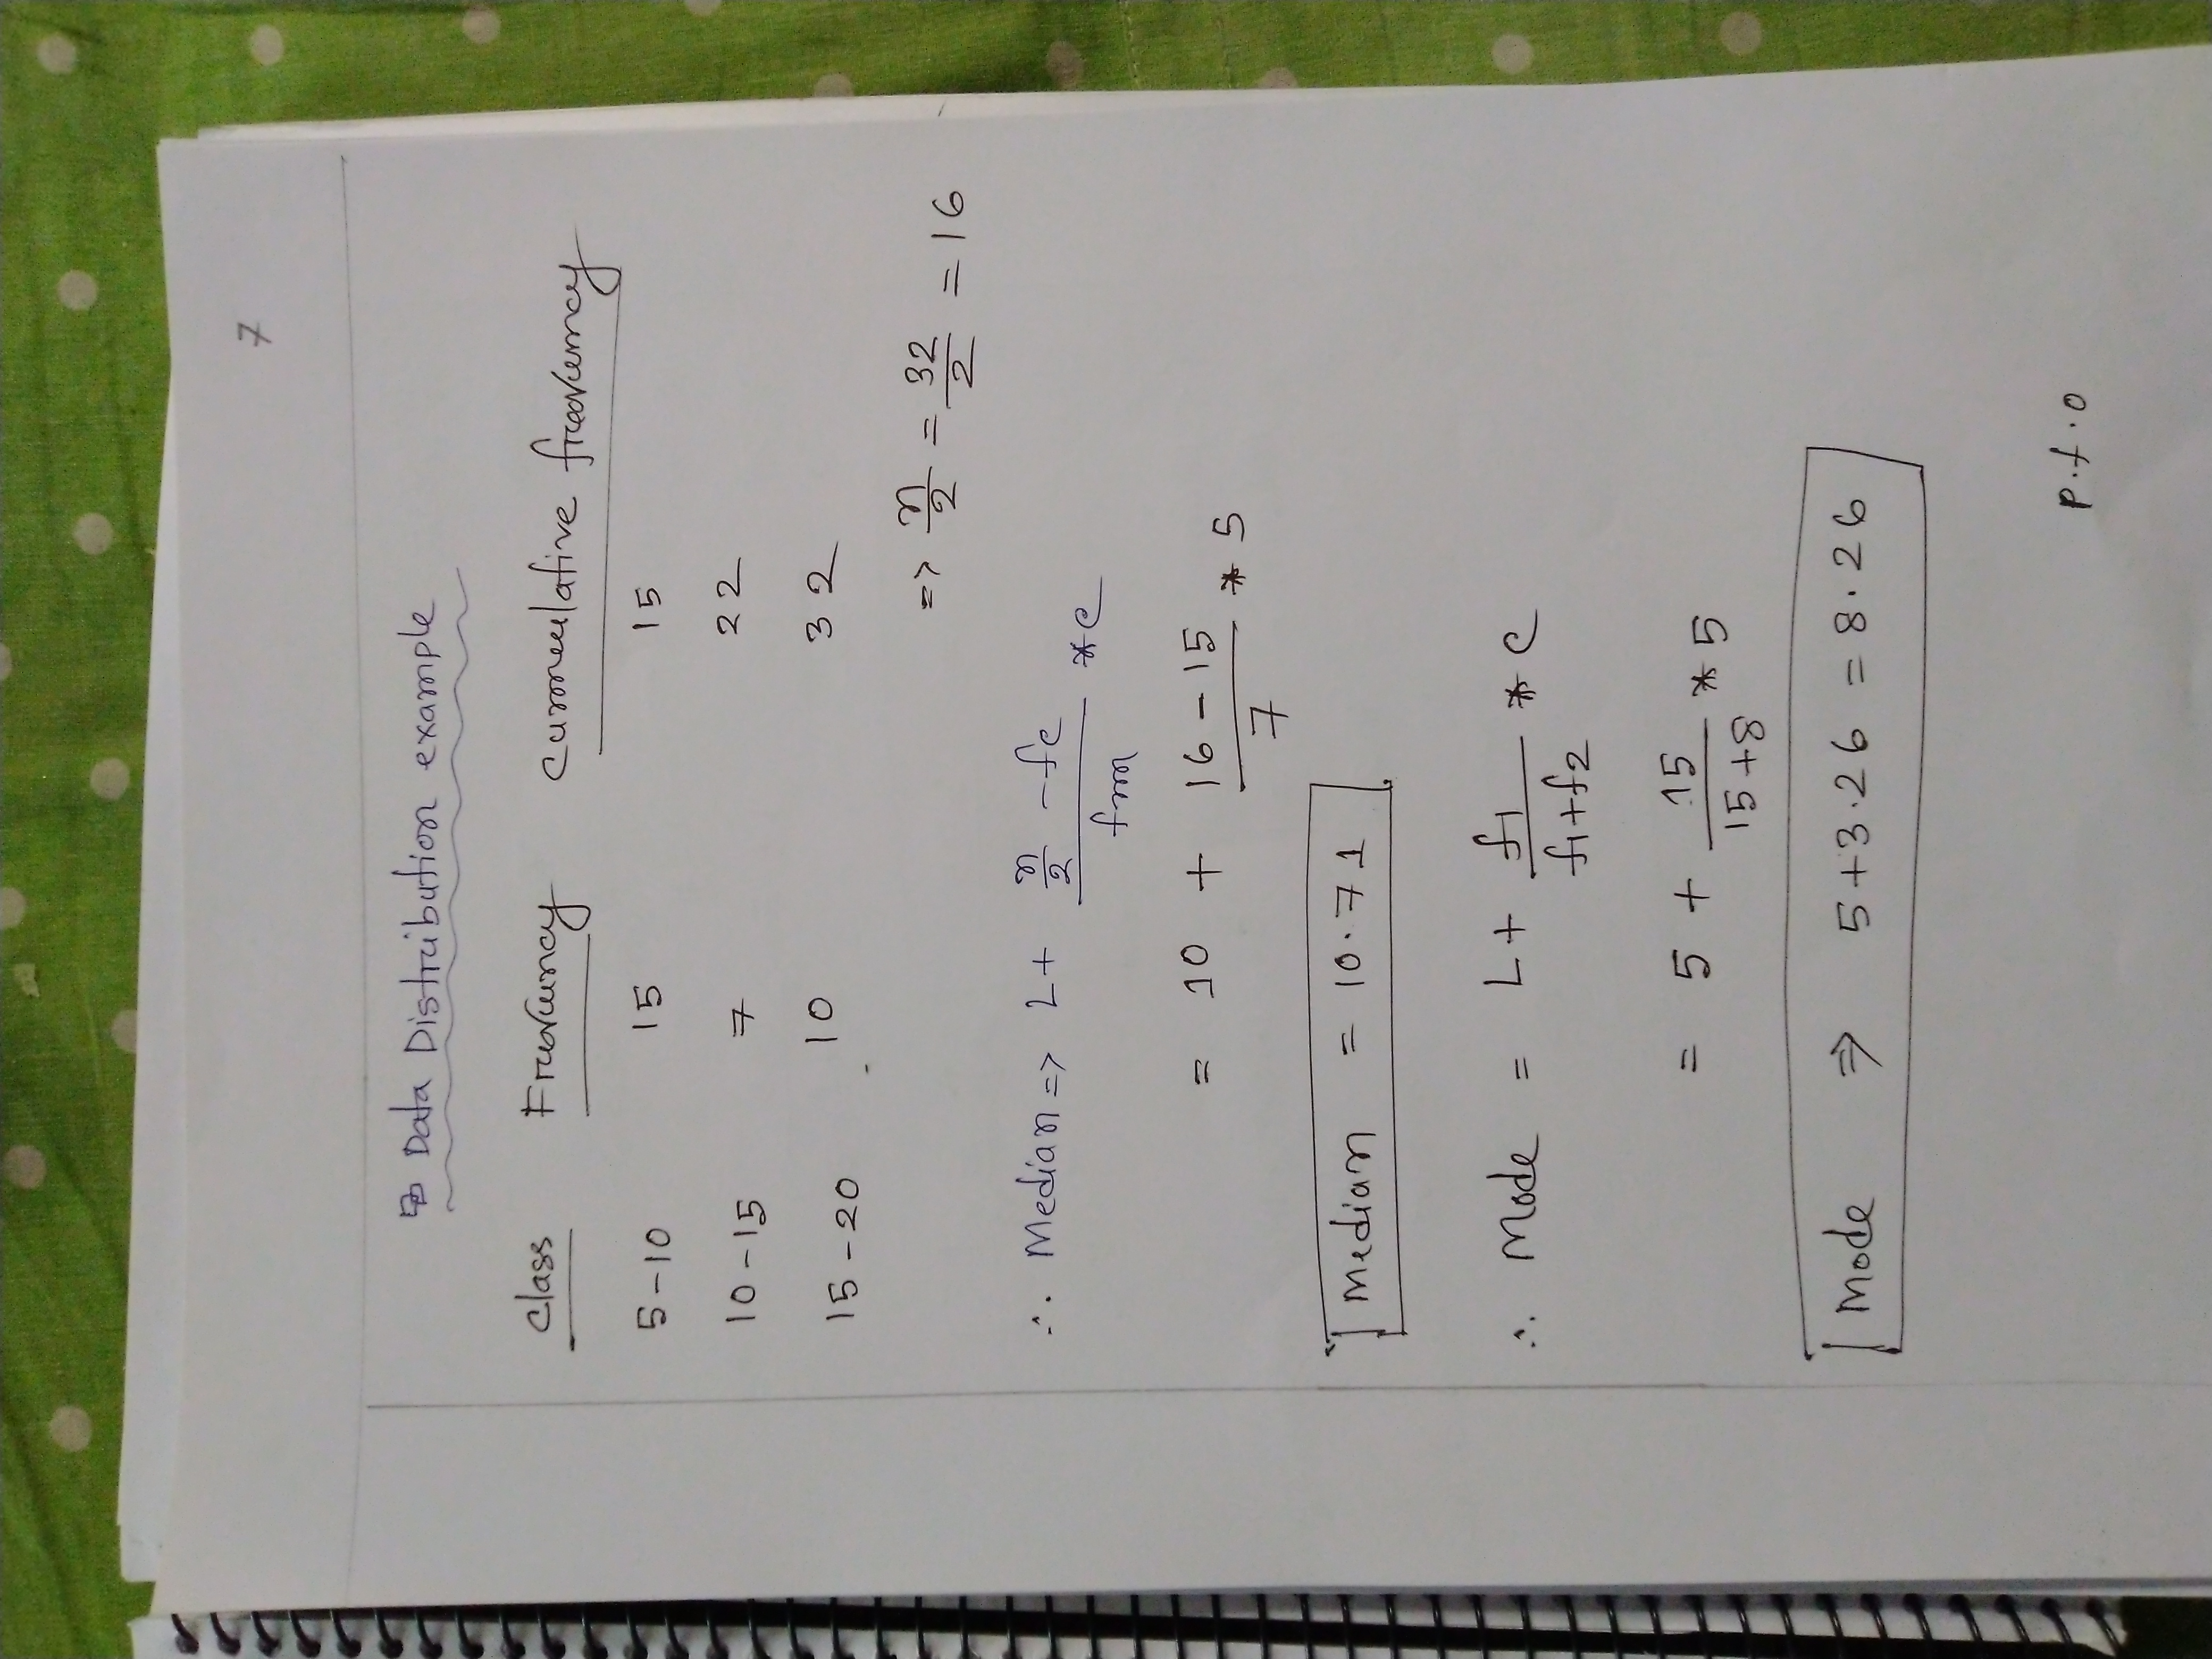 7
Data Distribution example
Class Frequency Cummulative frequency
5-10 15 15
10-15 7 22
15-20 10 32
=> n/2 = 32/2 = 16
∴ Median => L + (n/2 - fc)/fm * c
= 10 + (16-15)/7 * 5
Median = 10.71
∴ Mode = L + f1/(f1+f2) * c
= 5 + 15/(15+8) * 5
Mode ⇒ 5+3.26 = 8.26
p.t.o